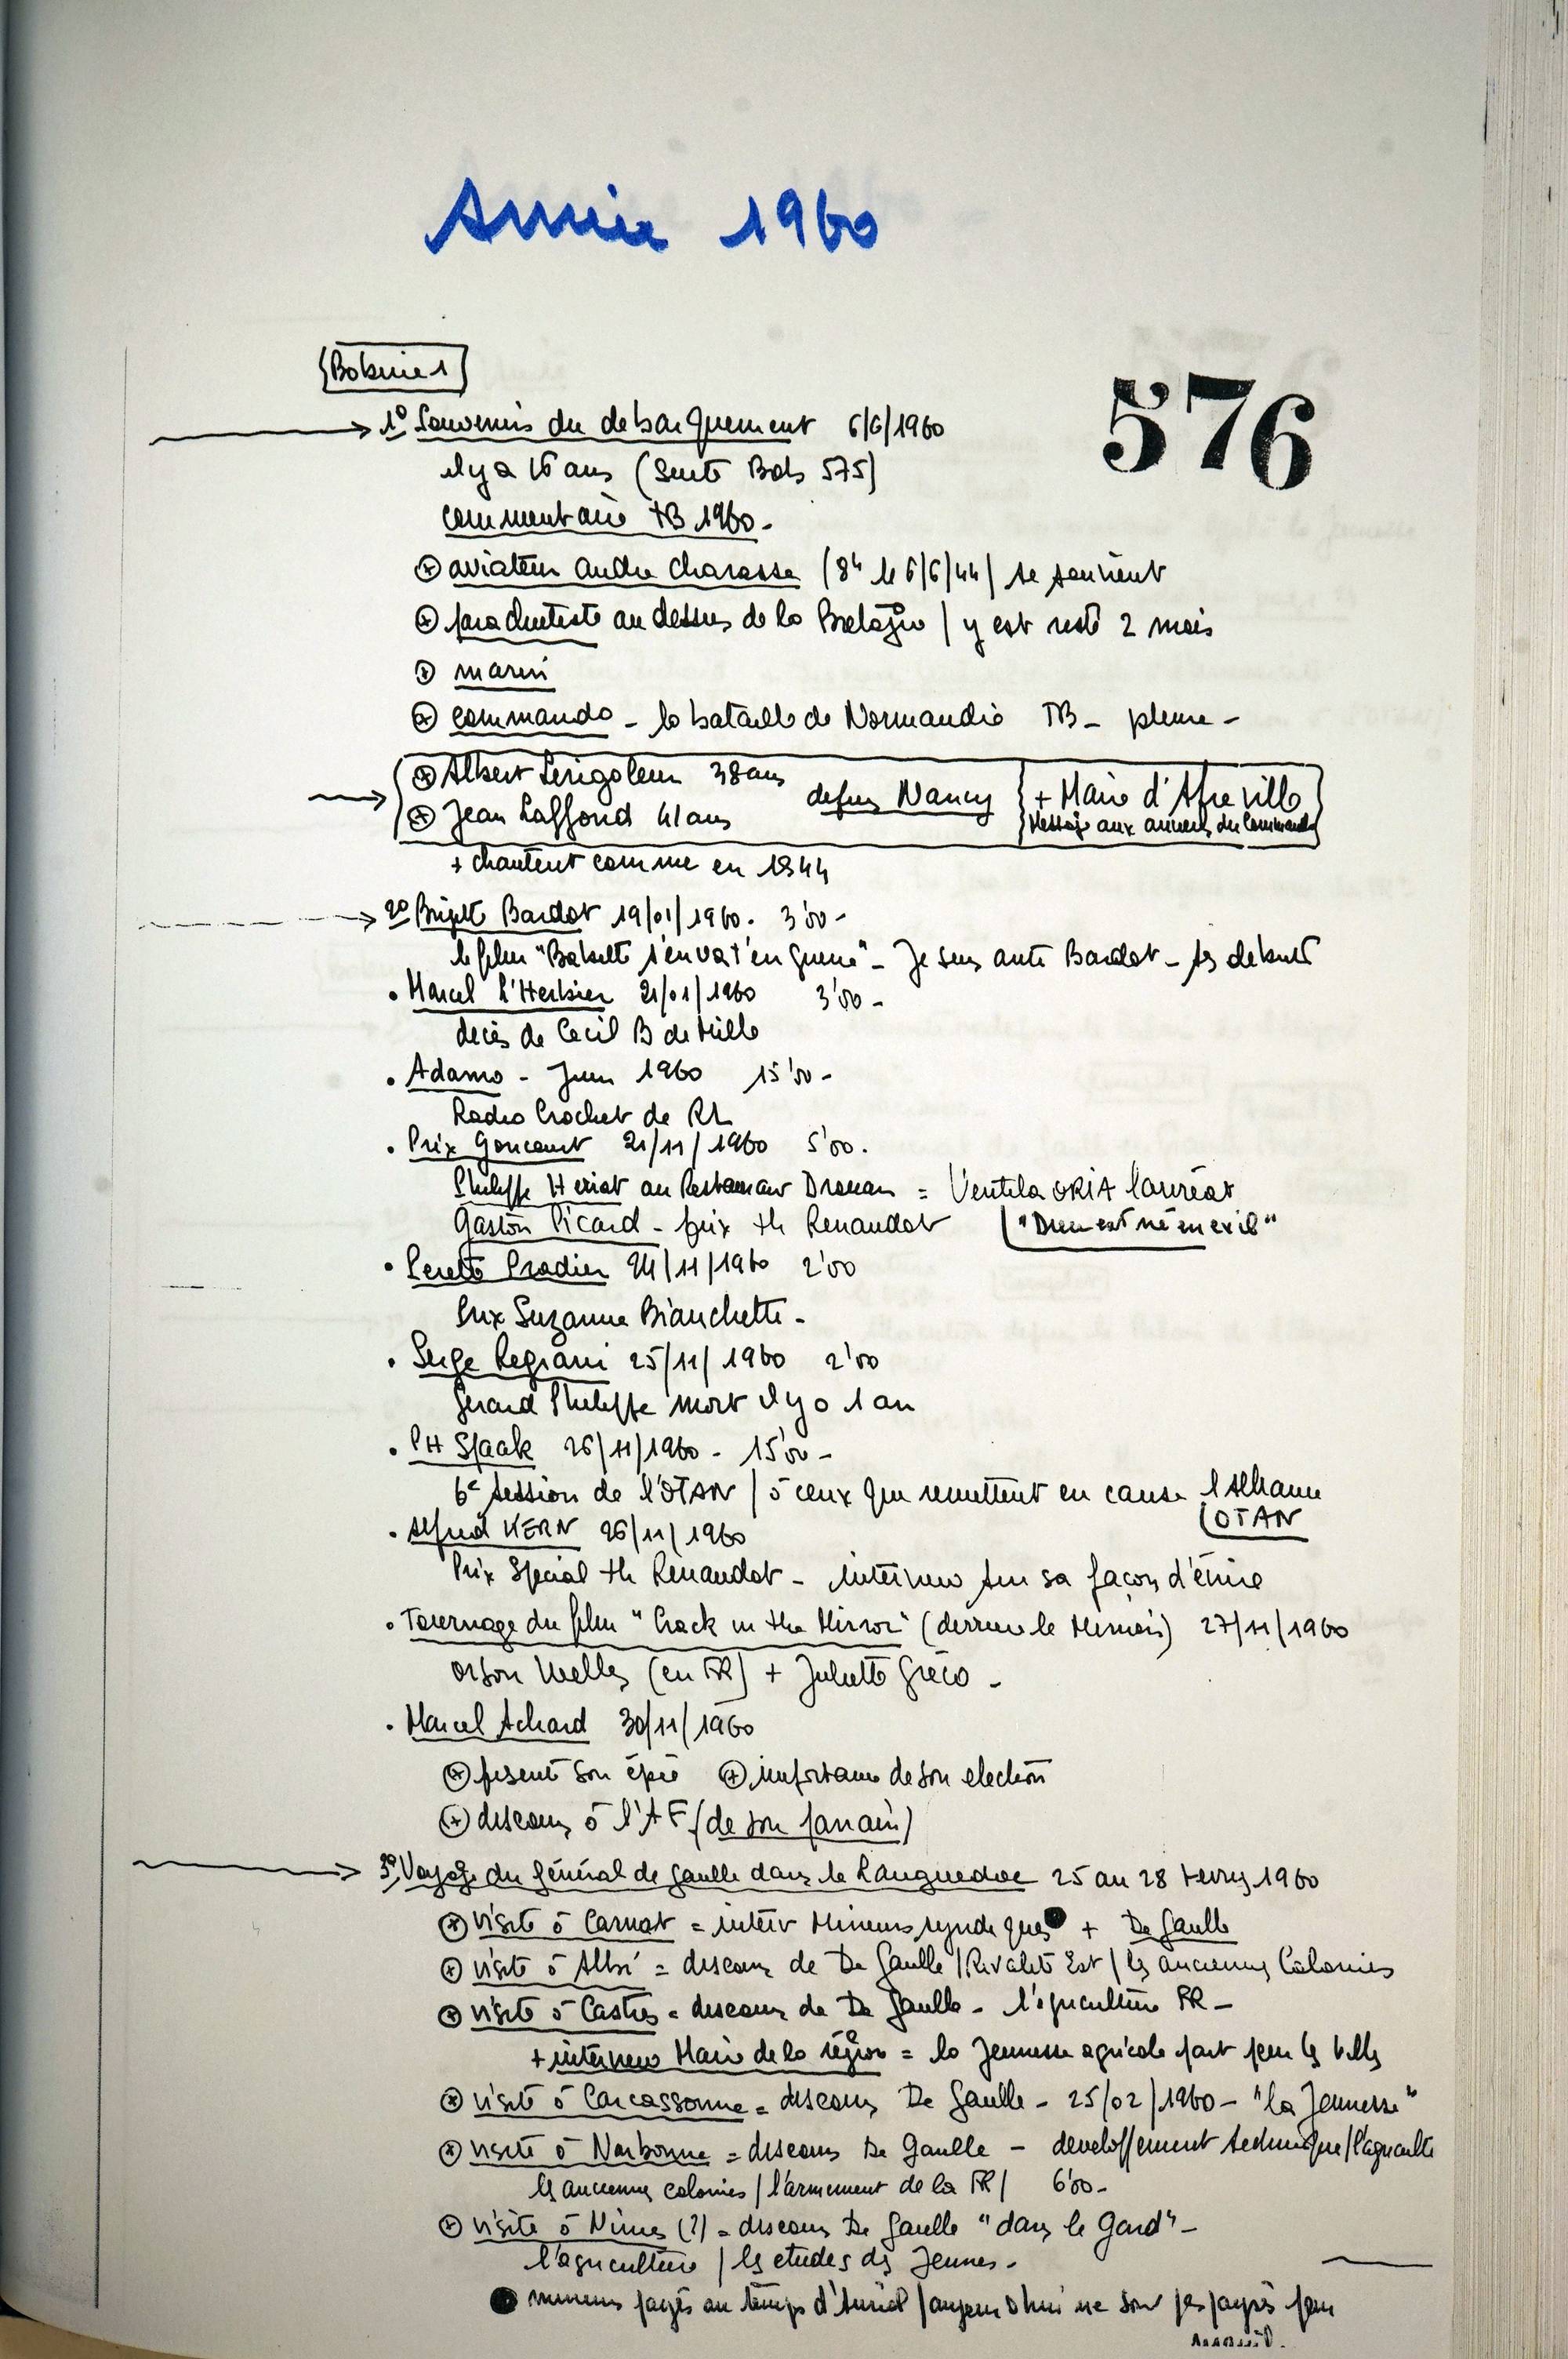 Année 1960
576
Bobine 1
1º Souvenirs du debarquement 6/6/1960
il y a 16 ans (suite Bob 575)
commentaire TB 1960 -
aviateur André Charasse (8h le 6/6/44) se souvient
parachutiste au dessus de la Bretagne / y est resté 2 mois
marin
commando - la bataille de Normandie TB - pleure -
Albert 38 ans
Jean Laffond 41 ans
depuis Nancy
+ Maire d'Afreville
Message aux anciens du Commando
+ chantent comme en 1944
2º Brigitte Bardot 19/01/1960. 3'00 -
le film "Babette s'en va t'en guerre" - Je suis anti Bardot - ses debuts
• Marcel l'Herbier 21/01/1960 3'00 -
décès de Cecil B de Mille
• Adamo - Juin 1960 15'00 -
Radio Crochet de RL
• Prix Goncourt 21/11/1960 5'00.
Philippe Heriat au Restaurant Drouan = Ventila ORIA lauréat
Gaston Picard - prix th Renaudot ("Dieu est né en exil"
• Perette Pradier 24/11/1960 2'00
Prix Suzanne Bianchette -
• Serge Regiani 25/11/1960 2'00
Gerard Philippe mort il y a 1 an
• PH Spaak 26/11/1960 - 15'00 -
6e session de l'OTAN / à ceux qui remettent en cause l'Alliance
OTAN
• Alfred KERN 26/11/1960
Prix Special th Renaudot - interview sur sa façon d'écrire
• Tournage du film "Crack in the Mirror" (derriere le Miroir) 27/11/1960
Orson Welles (en FR) + Juliette Gréco -
• Marcel Achard 30/11/1960
présente son épée importance de son election
discours à l'AF (de son parrain)
3º Voyage du Général de Gaulle dans le Languedoc 25 au 28 1960
visite à Carmat = interv Mineurs + De Gaulle
visite à Albi = discours de De Gaulle / Rivalité Est / les anciennes Colonies
visite à Castres = discours de De Gaulle - l'agriculture FR -
+ interview Maire de la région = la Jeunesse agricole part pour les villes
visite à Carcassonne = discours De Gaulle - 25/02/1960 - "la Jeunesse"
visite à Narbonne = discours De Gaulle - developpement technique / l'agriculte
les anciennes colonies / l'armement de la FR / 6'00 -
visite à Nimes (?) = discours De Gaulle "dans le Gard" -
l'agriculture / les etudes des Jeunes -
mineurs payés au temps d' / aujourd'hui ne sont pas payés pour